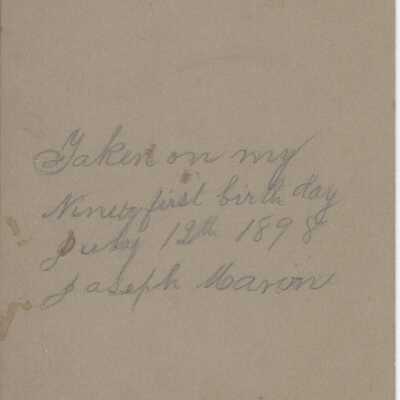 Taken on my
Ninety first birth day
July 12th 1898
Joseph Marvin